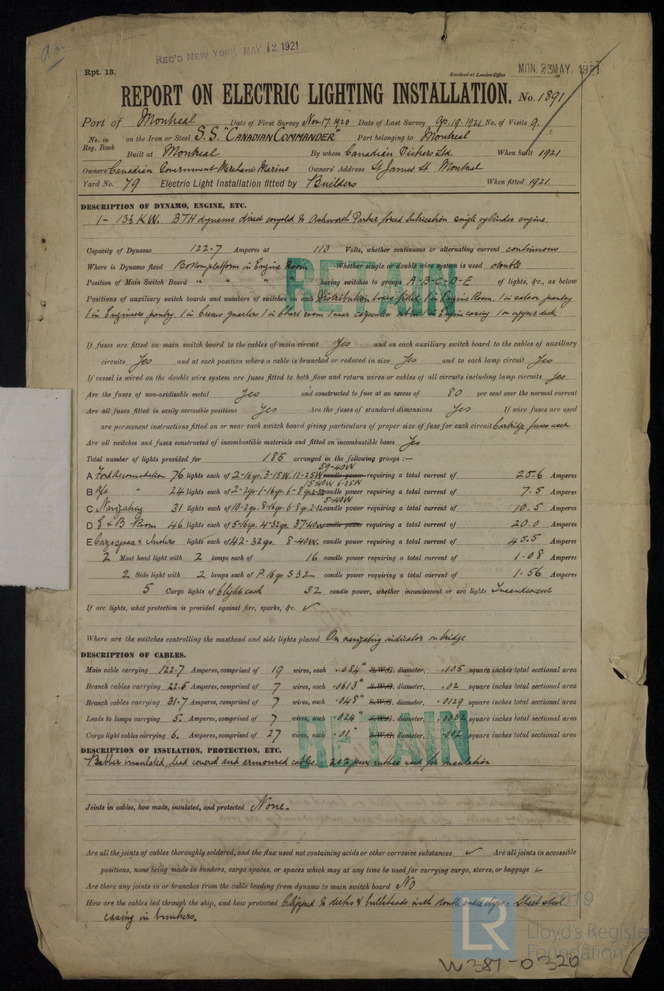 REC'D NEW YORK MAY 12 1921
Rpt. 13.
Received at London Office MON. 23 MAY. 1921
REPORT ON ELECTRIC LIGHTING INSTALLATION. No. 1891
Port of Montreal Date of First Survey Nov 17. 1920 Date of Last Survey Ap. 19. 1921 No. of Visits 9.
No. in Reg. Book on the Iron or Steel S.S. "CANADIAN COMMANDER" Port belonging to Montreal
Built at Montreal By whom Canadian Vickers Ltd. When built 1921
Owners Canadian Government Merchant Marine Owners' Address St James St Montreal
Yard No. 79 Electric Light Installation fitted by Builders When fitted 1921.
DESCRIPTION OF DYNAMO, ENGINE, ETC.
1 - 13½ K.W. BTH dynamo direct coupled to Ashworth Parker forced lubrication single cylinder engine.
Capacity of Dynamo 122.7 Amperes at 110 Volts, whether continuous or alternating current continuous
Where is Dynamo fixed Bottom platform in Engine Room Whether single or double wire system is used double
Position of Main Switch Board " " " " having switches to groups A-B-C-D-E of lights, &c., as below
Positions of auxiliary switch boards and numbers of switches on each Distribution boxes fitted 1 in Engine Room 1 in saloon pantry
1 in Engineers pantry. 1 in crews quarters 1 in chart room 1 near carpenters 1 in Engine casing 1 on upper deck
RETAIN
If fuses are fitted on main switch board to the cables of main circuit Yes and on each auxiliary switch board to the cables of auxiliary
circuits Yes and at each position where a cable is branched or reduced in size Yes and to each lamp circuit Yes
If vessel is wired on the double wire system are fuses fitted to both flow and return wires or cables of all circuits including lamp circuits Yes
Are the fuses of non-oxidizable metal Yes and constructed to fuse at an excess of 80 per cent over the normal current
Are all fuses fitted in easily accessible positions Yes Are the fuses of standard dimensions Yes If wire fuses are used
are permanent instructions fitted on or near each switch board giving particulars of proper size of fuse for each circuit Cartridge fuses used
Are all switches and fuses constructed of incombustible materials and fitted on incombustible bases Yes
Total number of lights provided for 185 arranged in the following groups :—
A 76 lights each of candle power requiring a total current of 25.6 Amperes
B 24 lights each of candle power requiring a total current of 7.5 Amperes
C Navigating 31 lights each of candle power requiring a total current of 10.5 Amperes
D E & B Room 46 lights each of candle power requiring a total current of 20.0 Amperes
E lights each of 42-32cp. 8-40W. candle power requiring a total current of 45.5 Amperes
2 Mast head light with 2 lamps each of 16 candle power requiring a total current of 1.08 Amperes
2 Side light with 2 lamps each of P.16 cp S 32 candle power requiring a total current of 1.56 Amperes
5 Cargo lights of 6 lights each 32 candle power, whether incandescent or arc lights Incandescent
If arc lights, what protection is provided against fire, sparks, &c. ✓
Where are the switches controlling the masthead and side lights placed On navigating indicator on bridge
DESCRIPTION OF CABLES.
Main cable carrying 122.7 Amperes, comprised of 19 wires, each .084" S.W.G. diameter, .105 square inches total sectional area
Branch cables carrying 22.6 Amperes, comprised of 7 wires, each .0613" S.W.G. diameter, .02 square inches total sectional area
Branch cables carrying 31.7 Amperes, comprised of 7 wires, each .048" S.W.G. diameter, .0129 square inches total sectional area
Leads to lamps carrying 5. Amperes, comprised of 7 wires, each .024" S.W.G. diameter, square inches total sectional area
Cargo light cables carrying 6. Amperes, comprised of 27 wires, each .01" S.W.G. diameter, square inches total sectional area
RETAIN
DESCRIPTION OF INSULATION, PROTECTION, ETC.
Rubber insulated, lead covered and armoured cables. 20% pure rubber used for insulation
Joints in cables, how made, insulated, and protected None.
Are all the joints of cables thoroughly soldered, and the flux used not containing acids or other corrosive substances ✓ Are all joints in accessible
positions, none being made in bunkers, cargo spaces, or spaces which may at any time be used for carrying cargo, stores, or baggage ✓
Are there any joints in or branches from the cable leading from dynamo to main switch board No
How are the cables led through the ship, and how protected Clipped to decks & bulkheads with Sheet steel
casing in bunkers.
LR
© 2019
Lloyd's Register
Foundation
W387-0320